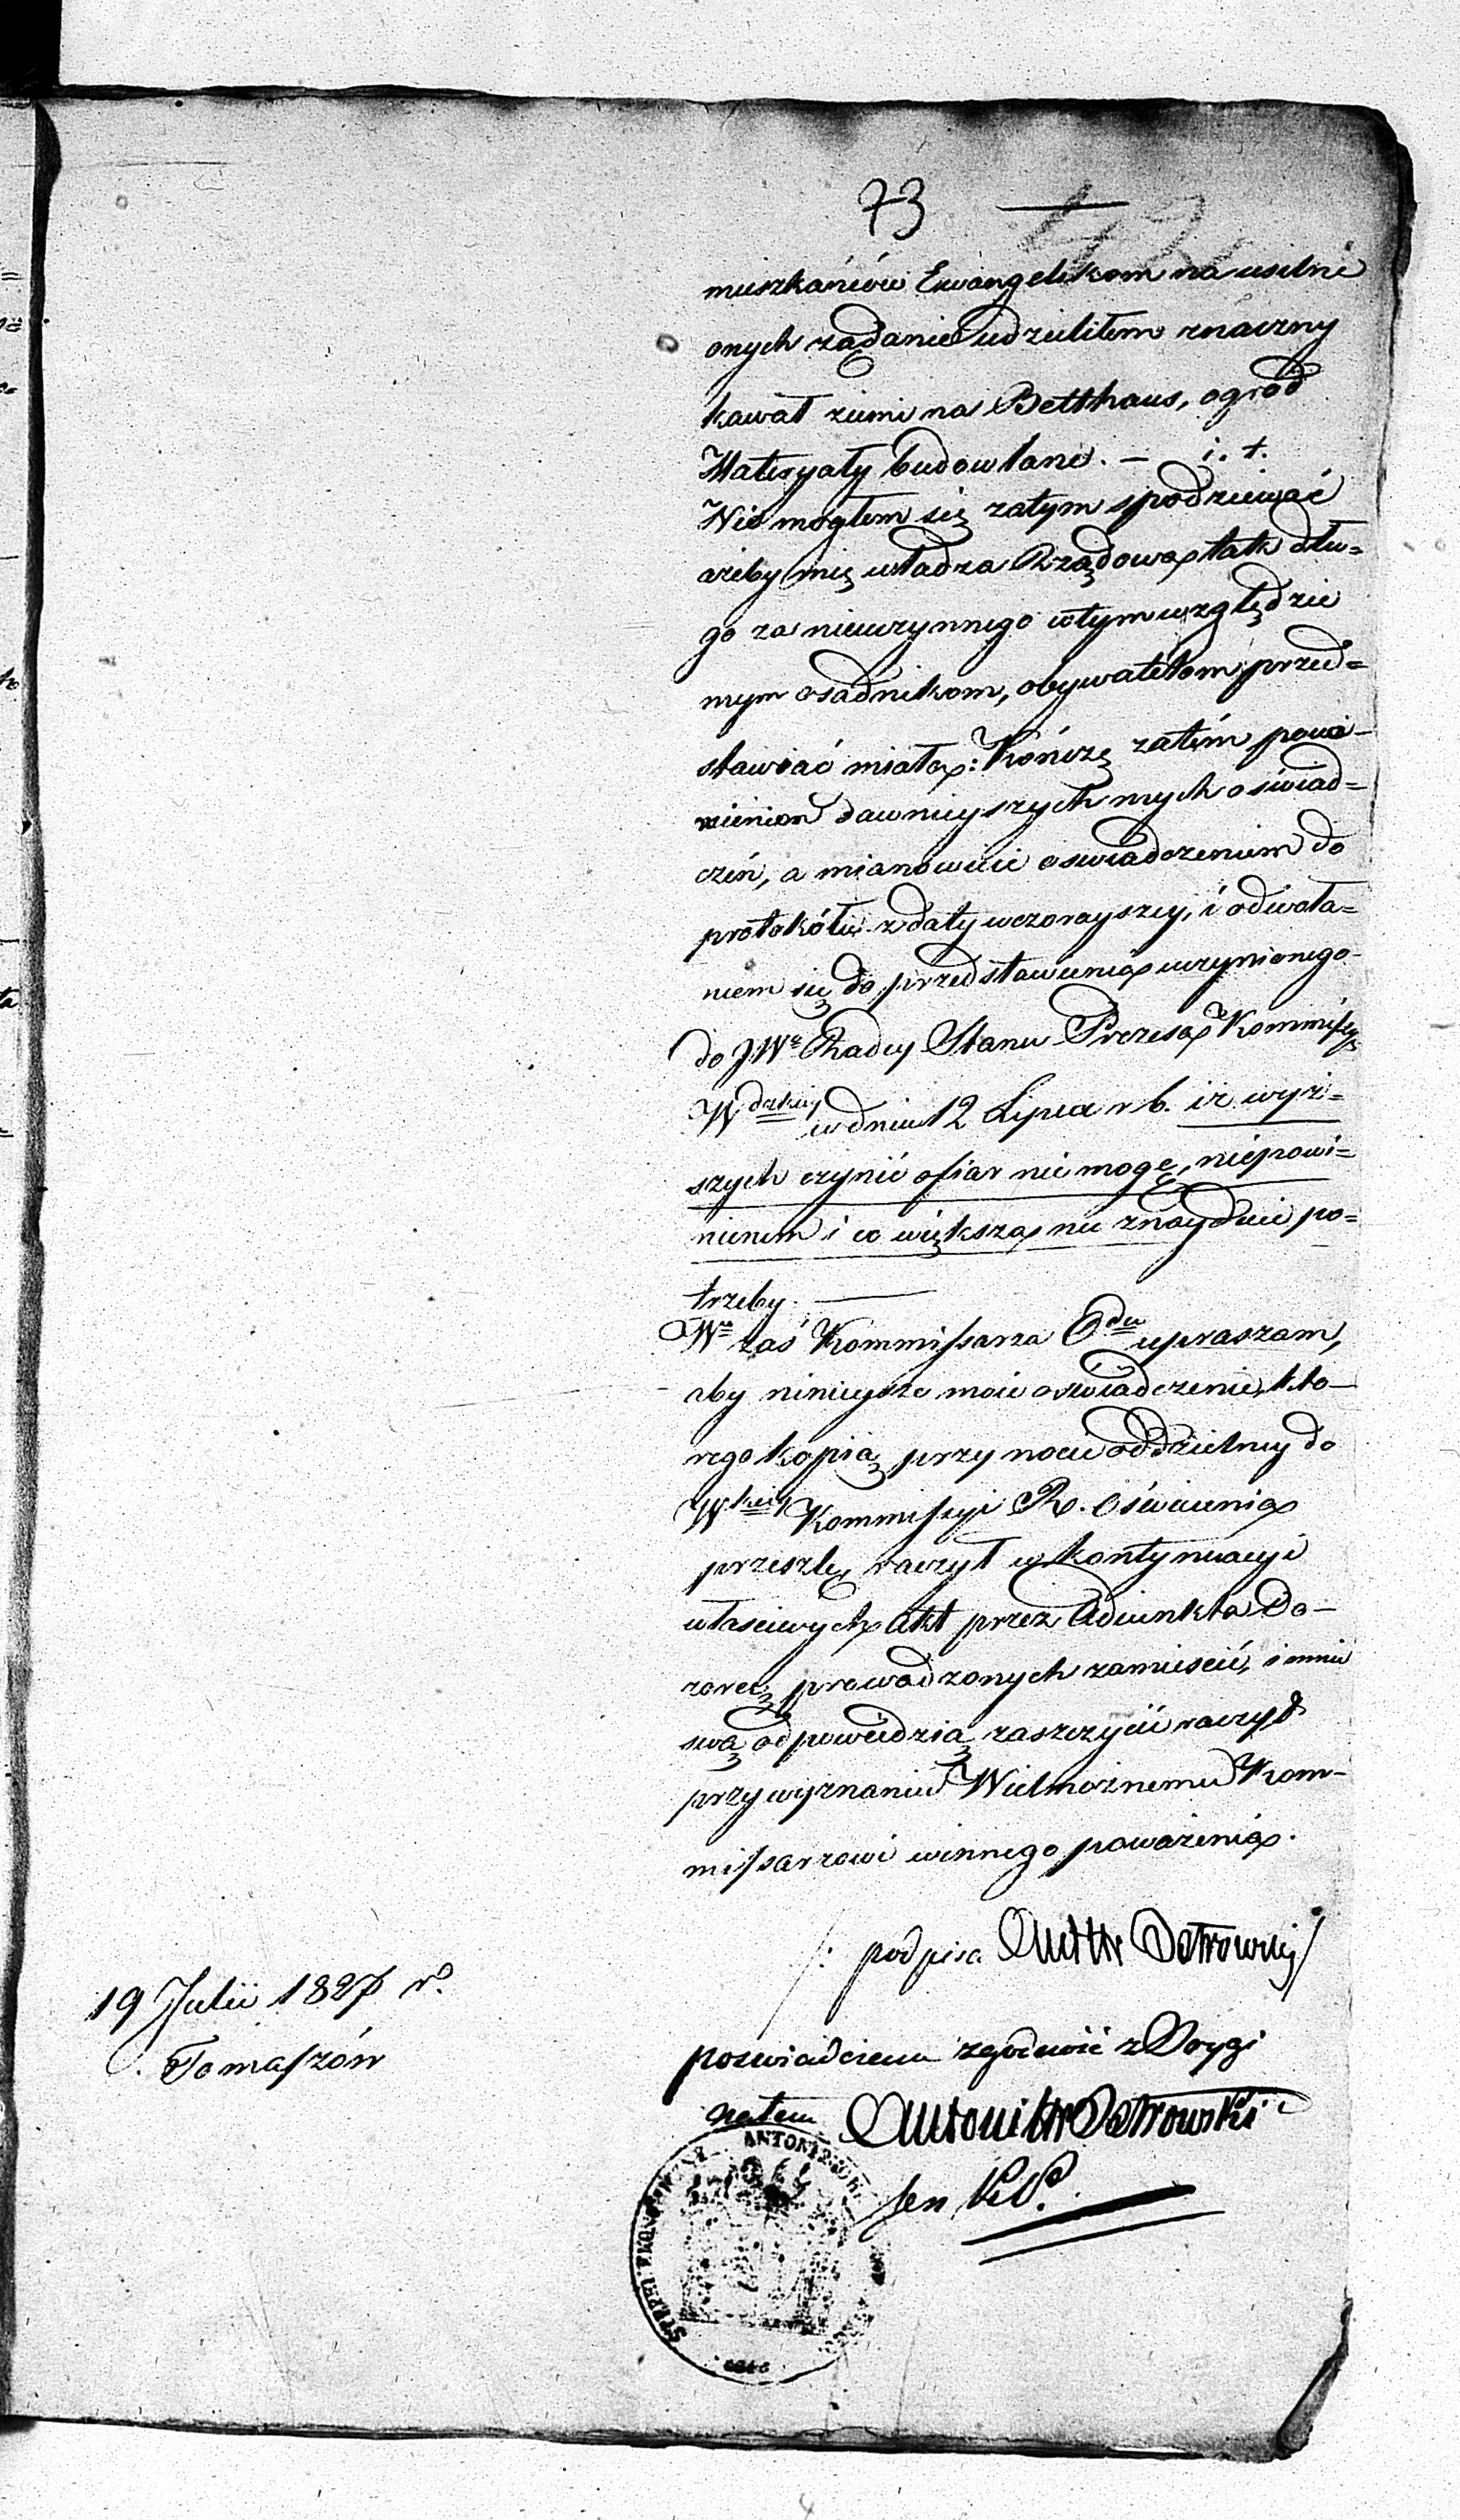 73 —
mieszkańców Ewangelikom na usilne
onych żądanie udzieliłem znaczny
kawał ziemi na Betthaus, ogród
Materyały budowlane. — i. t.
Nie mogłem się zatym spodziewać
ażeby mię władza Rządowa tak dłu=
go za nieuczynnego w tym względzie
mym osadnikom, obywatelom przed=
stawiać miała: Kończę zatém powo-
dawnieyszych mych oświad=
czeń, a mianowicie oswiadczeniem do
protokółu z daty wczorayszey, i odwoła=
niem się do przedstawienia uczynionego
do JWº Radcy Stanu Prezesa Kommissyi
Wdzkiey w dniu 12 Lipca r b. iż wyż=
szych czynić ofiar nie mogę, niepowi=
nienem i co większa nie znayduie po=
trzeby. —
Wº zaś Kommissarza Odu upraszam,
aby ninieysze moie oswiadczenie, któ-
rego kopią przy nocie oddzielney do
Wkiey Kommissyi R. Oświecenia
przeszlę, raczył w kontynuacyi
właściwych akt przez Adiunkta Do-
zorcę prowadzonych zamieścić, i mnie
swą odpowiedzią zaszczycić raczył
przy wyznaniu Wielmożnemu Kom-
missarzowi winnego poważenia.
/: podpisa Antk Ostrowski /
19 Julii 1827 rº.
Tomaszów
poswiadczam zgodność z Orygi
nałem Antoni Hr Ostrowski
Sen K P.
ANTONI